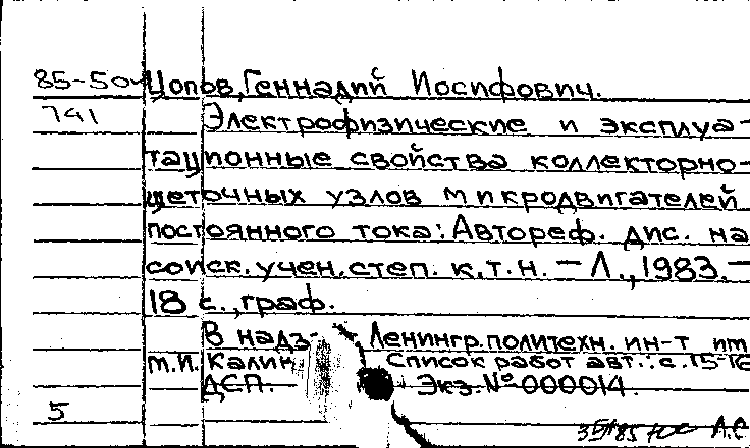 85-504 Цопов, Геннадий Иосифович.
741 Электрофизические и эксплуа-
тационные свойства коллекторно-
щеточных узлов микродвигателей
постоянного тока: Автореф. дис. на
соиск. учен. степ. к.т.н. — Л., 1983. —
18 с., граф.
В надз.: Ленингр. политехн. ин-т им
М.И. Калин Список работ авт.: с. 15-16
ДСП. Экз. № 000014.
5